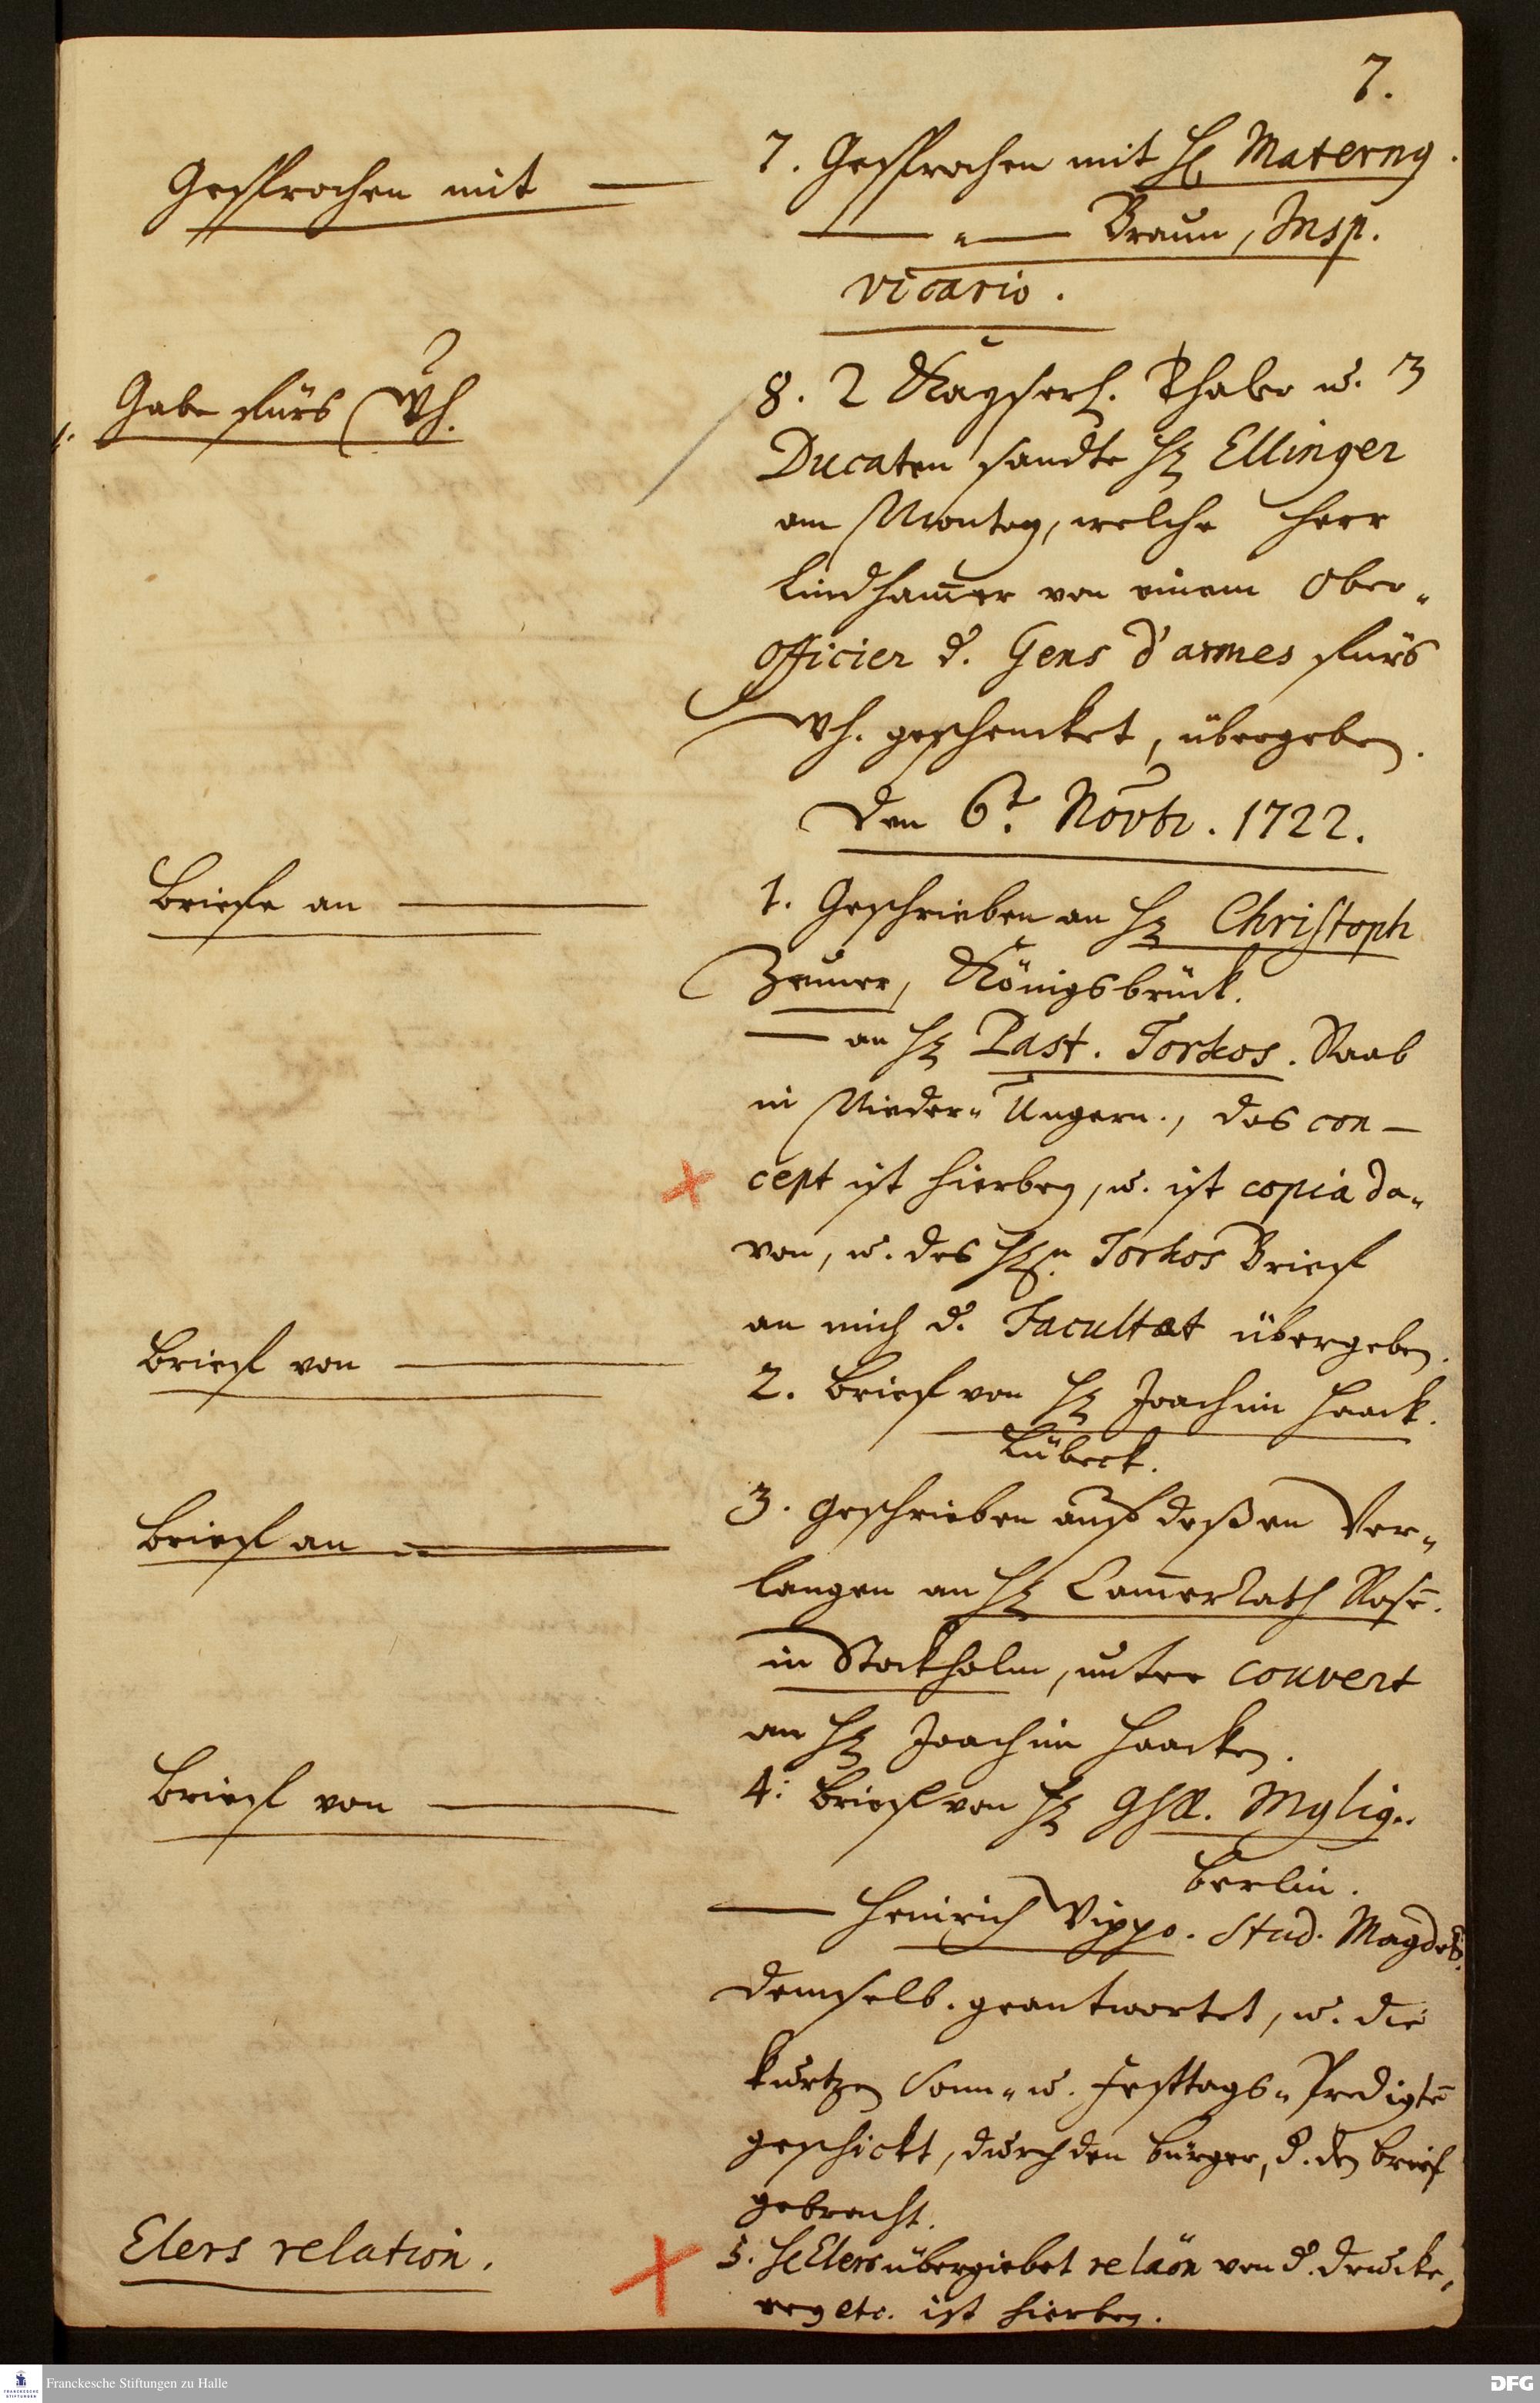 7.
Gesprochen mit —
7. Gesprochen mit H. Materny.
— " — Braun, Insp.
vicario.
Gabe fürs Wh.
8. 2 Kayserl. Thaler u. 3
Ducaten sandte H. Ellinger
am Montag, welche Herr
Lindham̄er von einem Ober-
officier d. Gens d'armes fürs
Wh. geschencket, übergeben.
Den 6t. Novbr. 1722.
Briefe an —
1. Geschrieben an H. Christoph
Zeuner, Königsbrück.
— an H. Past. Torkos. Raab
in Nieder-Ungern., das con-
cept ist hierbey, u. ist copia da-
von, u. des Hn. Torkos Brief
an mich d. Facultæt übergeben.
Brief von —
2. Brief von H. Joachim Haack.
Lübeck.
Brief an —
3. Geschrieben auf deßen Ver-
langen an H. Cam̄er Rath Rosē.
in Stockholm, unter couvert
an H. Joachim Haacken.
Brief von —
4. Brief von H. Mylig..
Berlin.
— Heinrich Vippo. Stud. Magdeb.
demselb. geantwortet, u. die
kurtzen Sonn- u. Festtags-Predigtē
geschickt, durch den bürger, d. den brief
gebracht.
Elers relation.
5. H Elers übergiebet relaōn von d. drucke-
rey etc. ist hierbey.
Franckesche Stiftungen zu Halle
DFG